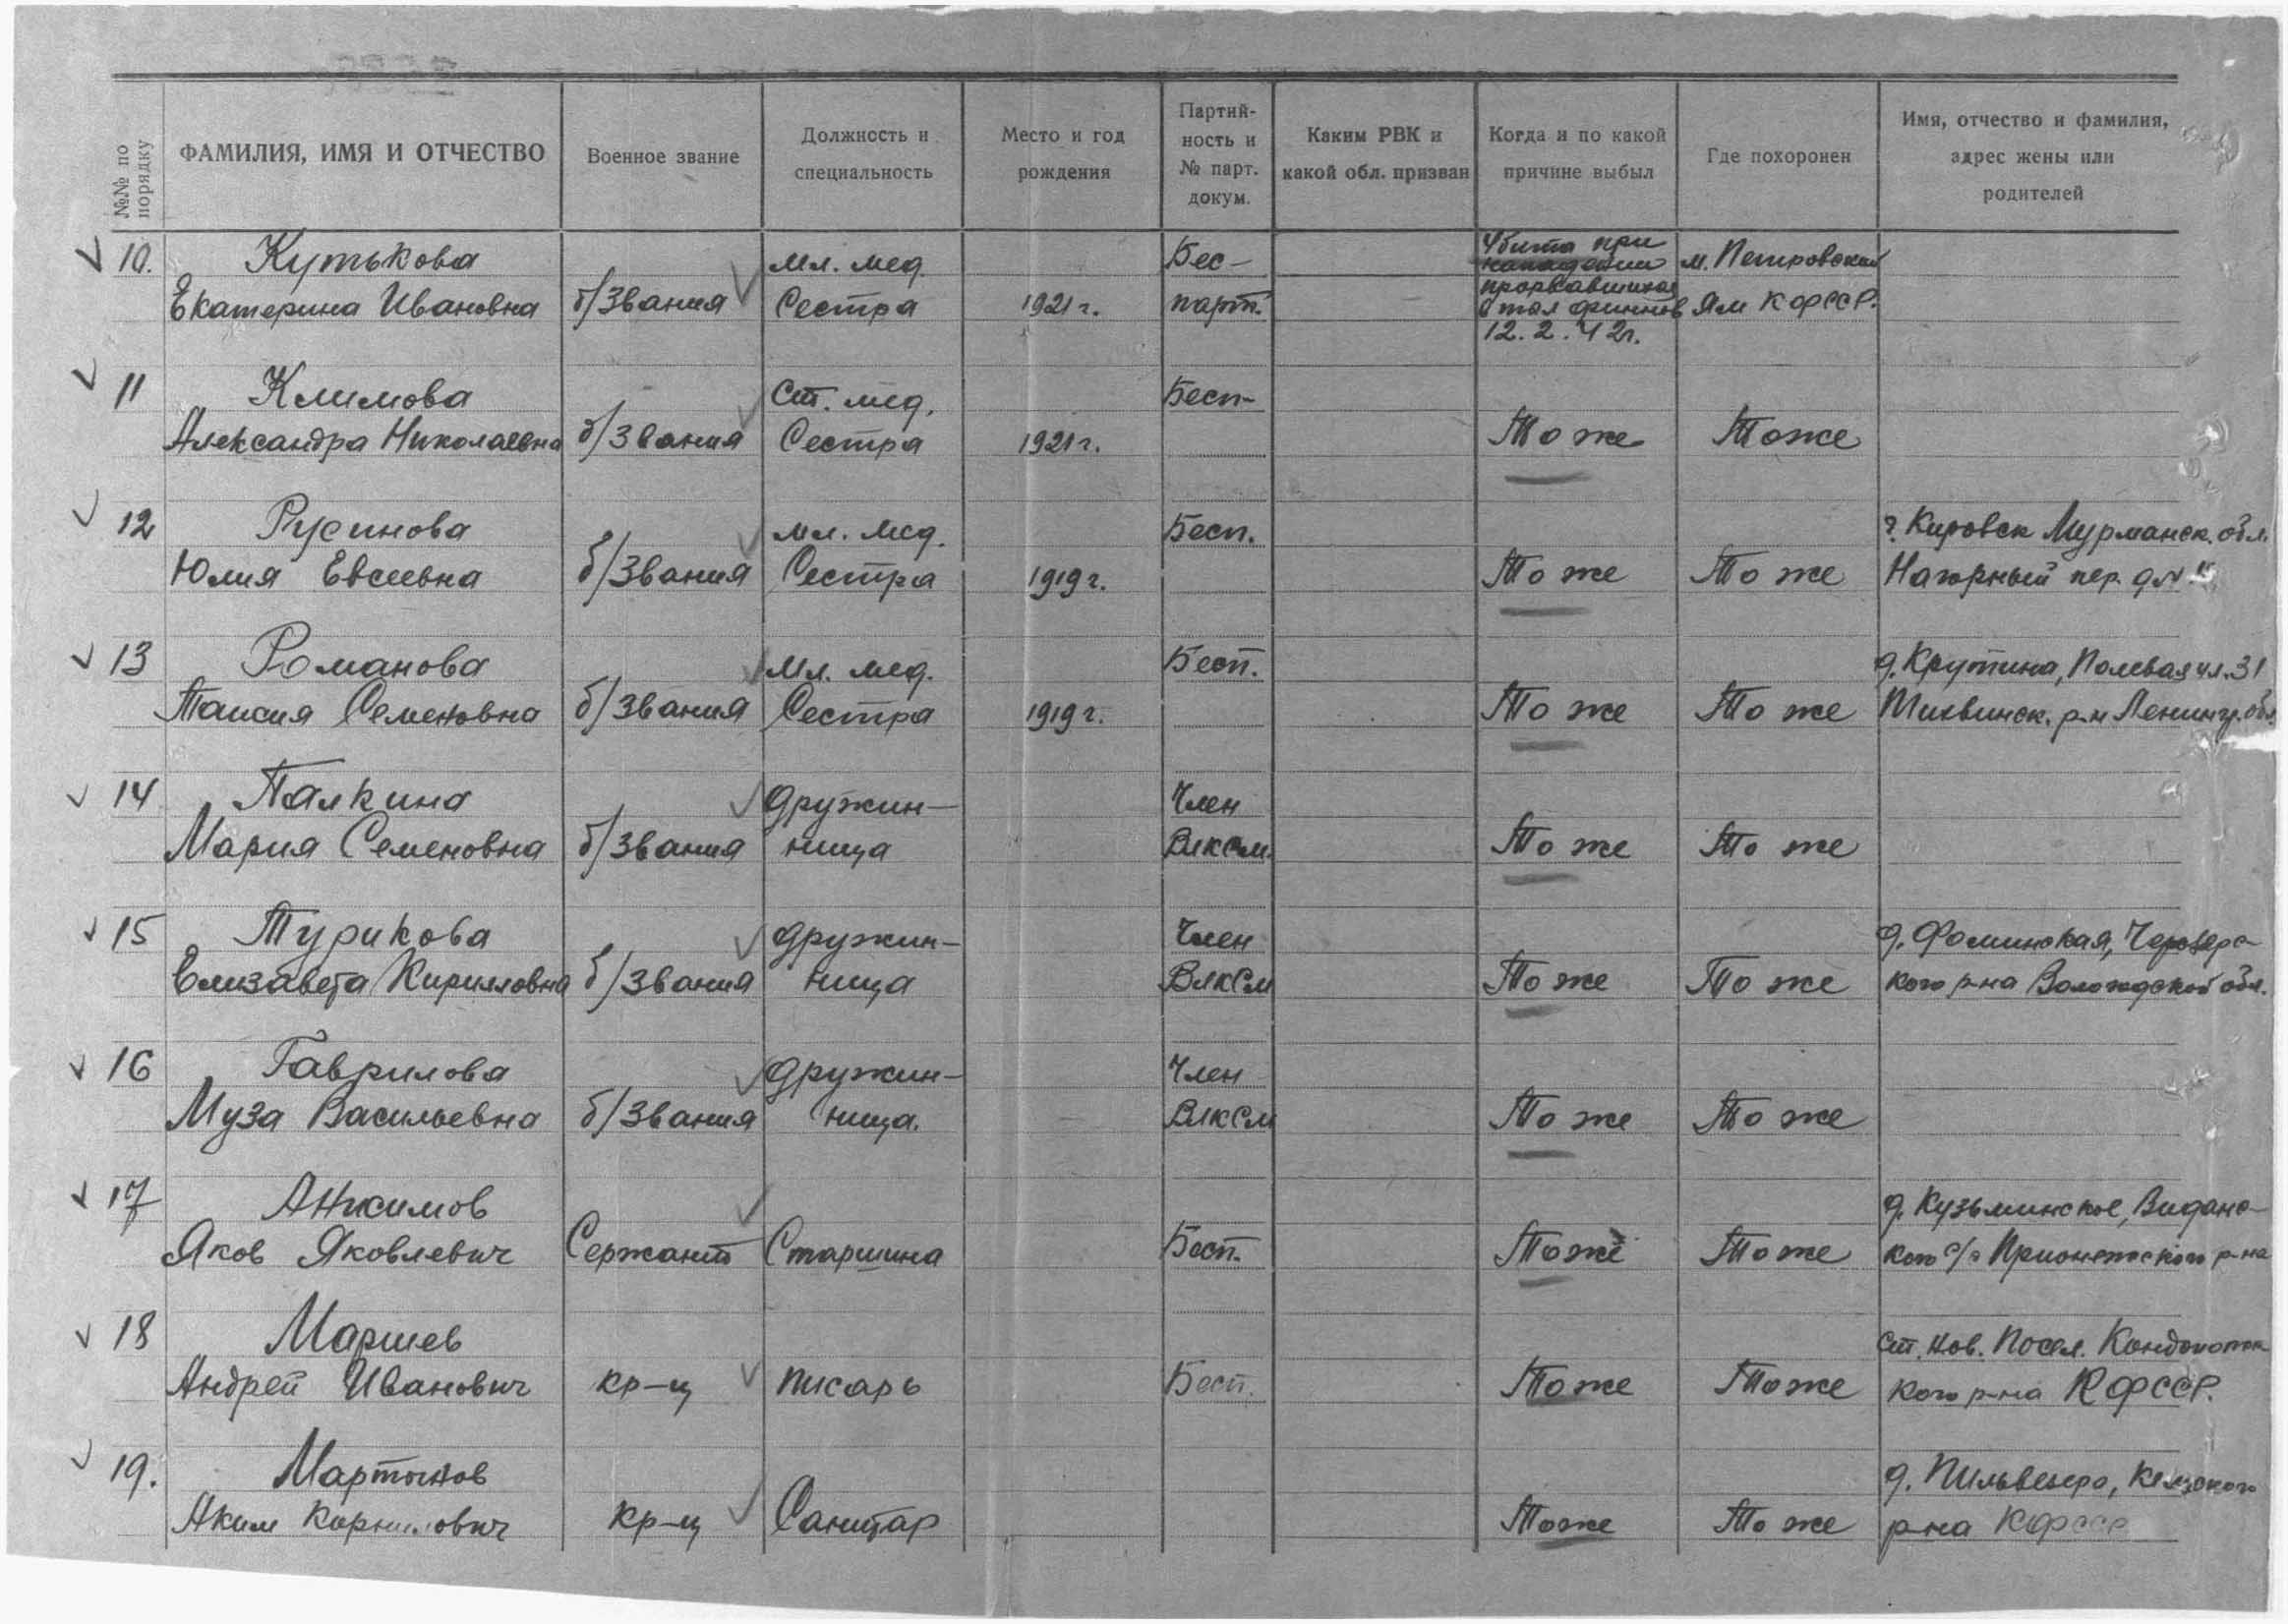 №№ по порядку
ФАМИЛИЯ, ИМЯ И ОТЧЕСТВО
Военное звание
Должность и специальность
Место и год рождения
Партийность и № парт. докум.
Каким РВК и какой обл. призван
Когда и по какой причине выбыл
Где похоронен
Имя, отчество и фамилия, адрес жены или родителей
10. Кутькова Екатерина Ивановна б/звания мл. мед. Сестра 1921 г. Бес-парт. Убита при нападении прорвавшихся в тыл финнов 12.2.42г. м. Петровский Ям КФССР.
11 Климова Александра Николаевна б/звания Ст. мед. Сестра 1921 г. Бесп- То же То же
12 Русинова Юлия Евсеевна б/звания мл. мед. Сестра 1919 г. Бесп. То же То же г. Кировск Мурманск. обл. Нагорный пер. д №
13 Романова Таисия Семеновна б/звания мл. мед. Сестра 1919 г. Бесп. То же То же д. Крутина, Полевая ул. 31 Тихвинск. р-н Ленингр. обл.
14 Палкина Мария Семеновна б/звания дружин-ница Член ВЛКСМ То же То же
15 Турикова Елизавета Кирилловна б/звания дружин-ница Член ВЛКСМ То же То же д. Фоминская, кого р-на Вологодской обл.
16 Гаврилова Муза Васильевна б/звания дружин-ница. Член ВЛКСМ То же То же
17 Анхимов Яков Яковлевич Сержант Старшина Бесп. То же То же д. Кузьминское, Виданс-кого с/с Прионежского р-на
18 Маршев Андрей Иванович кр-ц писарь Бесп. То же То же ст. Нов. Посел. Кондопож кого р-на КФССР.
19. Мартынов Аким Корнилович кр-ц Санитар То же То же д. р-на КФССР